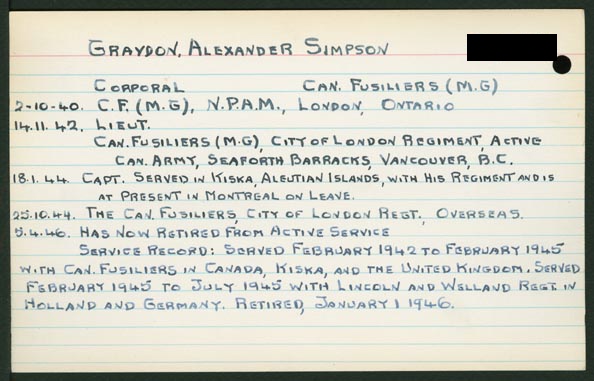 GRAYDON, ALEXANDER SIMPSON
CORPORAL CAN. FUSILIERS (M.G)
2-10-40. C.F. (M.G), N.P.A.M., LONDON, ONTARIO
14.11.42. LIEUT.
CAN. FUSILIERS (M.G), CITY OF LONDON REGIMENT, ACTIVE
CAN. ARMY, SEAFORTH BARRACKS, VANCOUVER, B.C.
18.1.44. CAPT. SERVED IN KISKA, ALEUTIAN ISLANDS, WITH HIS REGIMENT AND IS
AT PRESENT IN MONTREAL ON LEAVE.
25.10.44. THE CAN. FUSILIERS, CITY OF LONDON REGT., OVERSEAS.
5.4.46. HAS NOW RETIRED FROM ACTIVE SERVICE
SERVICE RECORD: SERVED FEBRUARY 1942 TO FEBRUARY 1945
WITH CAN. FUSILIERS IN CANADA, KISKA, AND THE UNITED KINGDOM. SERVED
FEBRUARY 1945 TO JULY 1945 WITH LINCOLN AND WELLAND REGT. IN
HOLLAND AND GERMANY. RETIRED, JANUARY 1 1946.